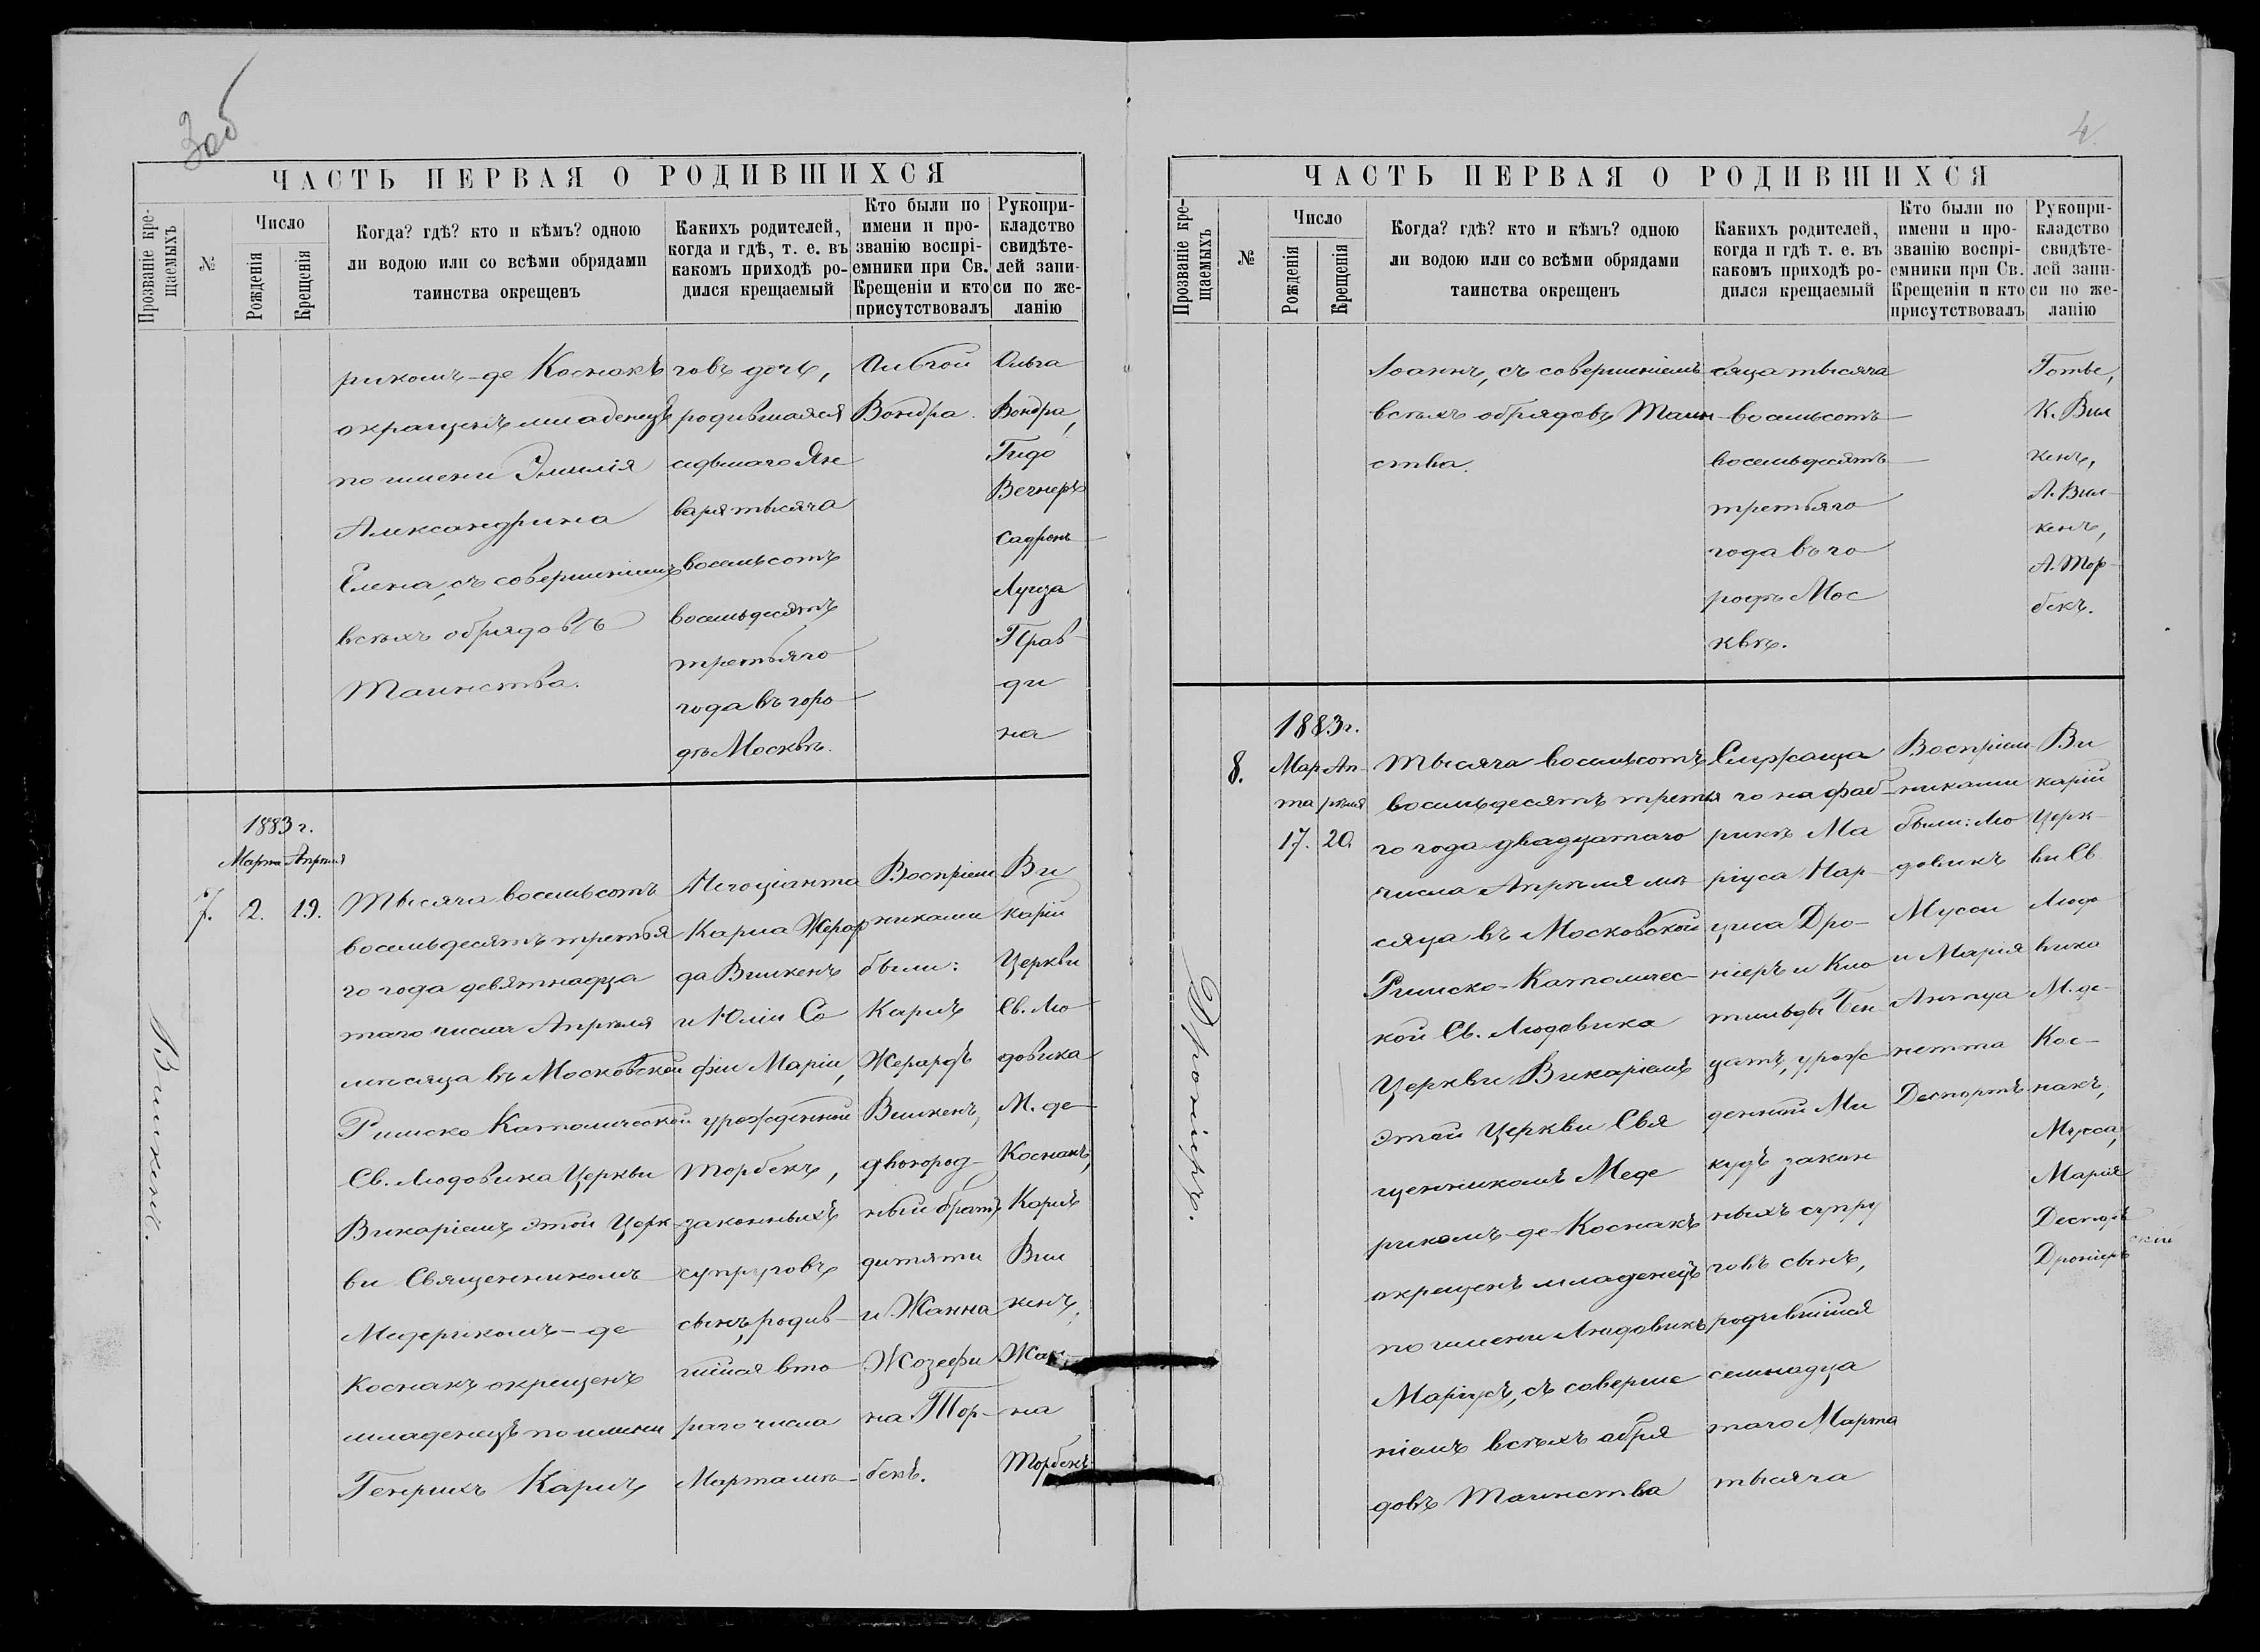 3об
ЧАСТЬ ПЕРВАЯ О РОДИВШИХСЯ
Прозваніе кре-
щаемыхъ
№
Число
Рожденія
Крещенія
Когда? гдѣ? кто и кѣмъ? одною
ли водою или со всѣми обрядами
таинства окрещенъ
Какихъ родителей,
когда и гдѣ, т. е. въ
какомъ приходѣ ро-
дился крещаемый
Кто были по
имени и про-
званію воспрі-
емники при Св.
Крещеніи и кто
присутствовалъ
Рукопри-
кладство
свидѣте-
лей запи-
си по же-
ланію
рикомъ-де Коснакъ
окрещенъ младенецъ
по имени Эмилія
Александрина
Елена, съ совершеніемъ
всѣхъ обрядовъ
Таинства.
говъ дочь,
родившаяся
седьмаго Ян
варя тысяча
восемьсотъ
восемьдесятъ
третьяго
года въ горо
дѣ Москвѣ.
Ольгой
Вондра.
Ольга
Вондра,
Гидо
Вегнеръ
Садронъ
Луиза
Прав-
ди
на
Вилькенъ.
7.
1883 г.
Марта Апрѣля
2. 19.
Тысяча восемьсотъ
восемьдесятъ третья
го года девятнадца
таго числа Апрѣля
мѣсяца въ Московской
Римско Католической
Св. Людовика Церкви
Викаріемъ этой Церк-
ви Священникомъ
Медерикомъ-де
Коснакъ окрещенъ
младенецъ по имени
Генрихъ Карлъ
Негоціанта
Карла Жерар
да Вилкенъ
и Юліи Со
фіи Маріи,
урожденной
Торбекъ,
законныхъ
супруговъ
сынъ, родив-
шійся вто
раго числа
Марта мѣ-
Воспріем
никами
были:
Карлъ
Жерардъ
Вилкенъ,
двоюрод-
ный братъ
дитяти
и Жанна
Жозефи
на Тор-
бекъ.
Ви
карій
Церкви
Св. Лю
довика
М. де
Коснакъ,
Карлъ
Вил
кенъ,
Жан
на
Торбекъ
4
ЧАСТЬ ПЕРВАЯ О РОДИВШИХСЯ
Прозваніе кре-
щаемыхъ
№
Число
Рожденія
Крещенія
Когда? гдѣ? кто и кѣмъ? одною
ли водою или со всѣми обрядами
таинства окрещенъ
Какихъ родителей,
когда и гдѣ т. е. въ
какомъ приходѣ ро-
дился крещаемый
Кто были по
имени и про-
званію воспрі-
емники при Св.
Крещеніи и кто
присутствовалъ
Рукопри-
кладство
свидѣте-
лей запи-
си по же-
ланію
Іоаннъ, съ совершеніемъ
всѣхъ обрядовъ Таин-
ства.
сяца тысяча
восемьсотъ
восемьдесятъ
третьяго
года въ го
родѣ Мос
квѣ.
Готье,
К. Вил
кенъ,
А. Вил-
кенъ,
А. Тор-
бекъ.
Дроніеръ.
8.
1883 г.
Мар Ап-
та рѣля
17. 20.
Тысяча восемьсотъ
восемьдесятъ третья
го года двадцатаго
числа Апрѣля мѣ-
сяца въ Московской
Римско-Католичес-
кой Св. Людовика
Церкви Викаріемъ
этой Церкви Свя
щенникомъ Меде
рикомъ-де-Коснакъ
окрещенъ младенецъ
по имени Людовикъ
Маріусъ, съ соверше
ніемъ всѣхъ обря
довъ Таинства
Служаща
го на фаб-
рикѣ Ма
ріуса Нар-
циса Дро-
ніеръ и Кло
тильды Бен
цатъ, урож
денной Ми
кудъ закон
ныхъ супру
говъ сынъ,
родившійся
семнадца
таго Марта
тысяча
Воспріем-
никами
были: Лю
довикъ
Мусси
и Марія
Антуа
нетта
Деспортъ
Ви
карій
Церк-
ви Св.
Людо
вика
М. де-
Кос-
накъ,
Мусса,
Марія
Деспортъ
Дроніеръ